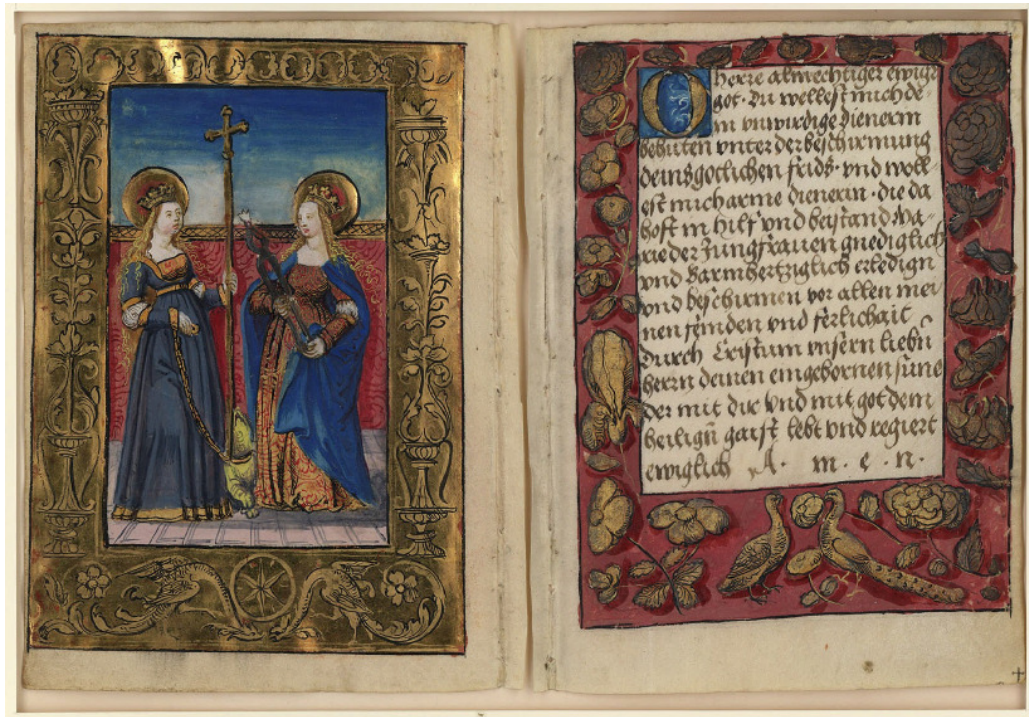 O herre almechtiger ewige
got · du wellest mich de
in vnwirdige dienerin
behüten vnter der beschirmung
deins gotlichen frids · vnd woll
est mich arme dienerin · die da
hoft in hilf vnd beistand ma-
rie der Jungfrauen gnediglich
vnd barmhertziglich erledign
vnd beschirmen vor allen mei
nen feinden vnd ferlichait
durch Cristum vnsern liebn̄
herrn deinen eingebornen sune
der mit dir vnd mit got dem
heilign̄ gaist lebt vnd regiert
ewiglich A · m · e · n ·